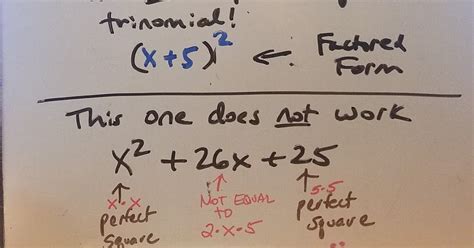 trinomial!
(x+5)² ← Factored
Form
This one does not work
x² + 26x + 25
↑ ↑ ↑
x·x NOT EQUAL 5·5
perfect TO perfect
square 2·x·5 square